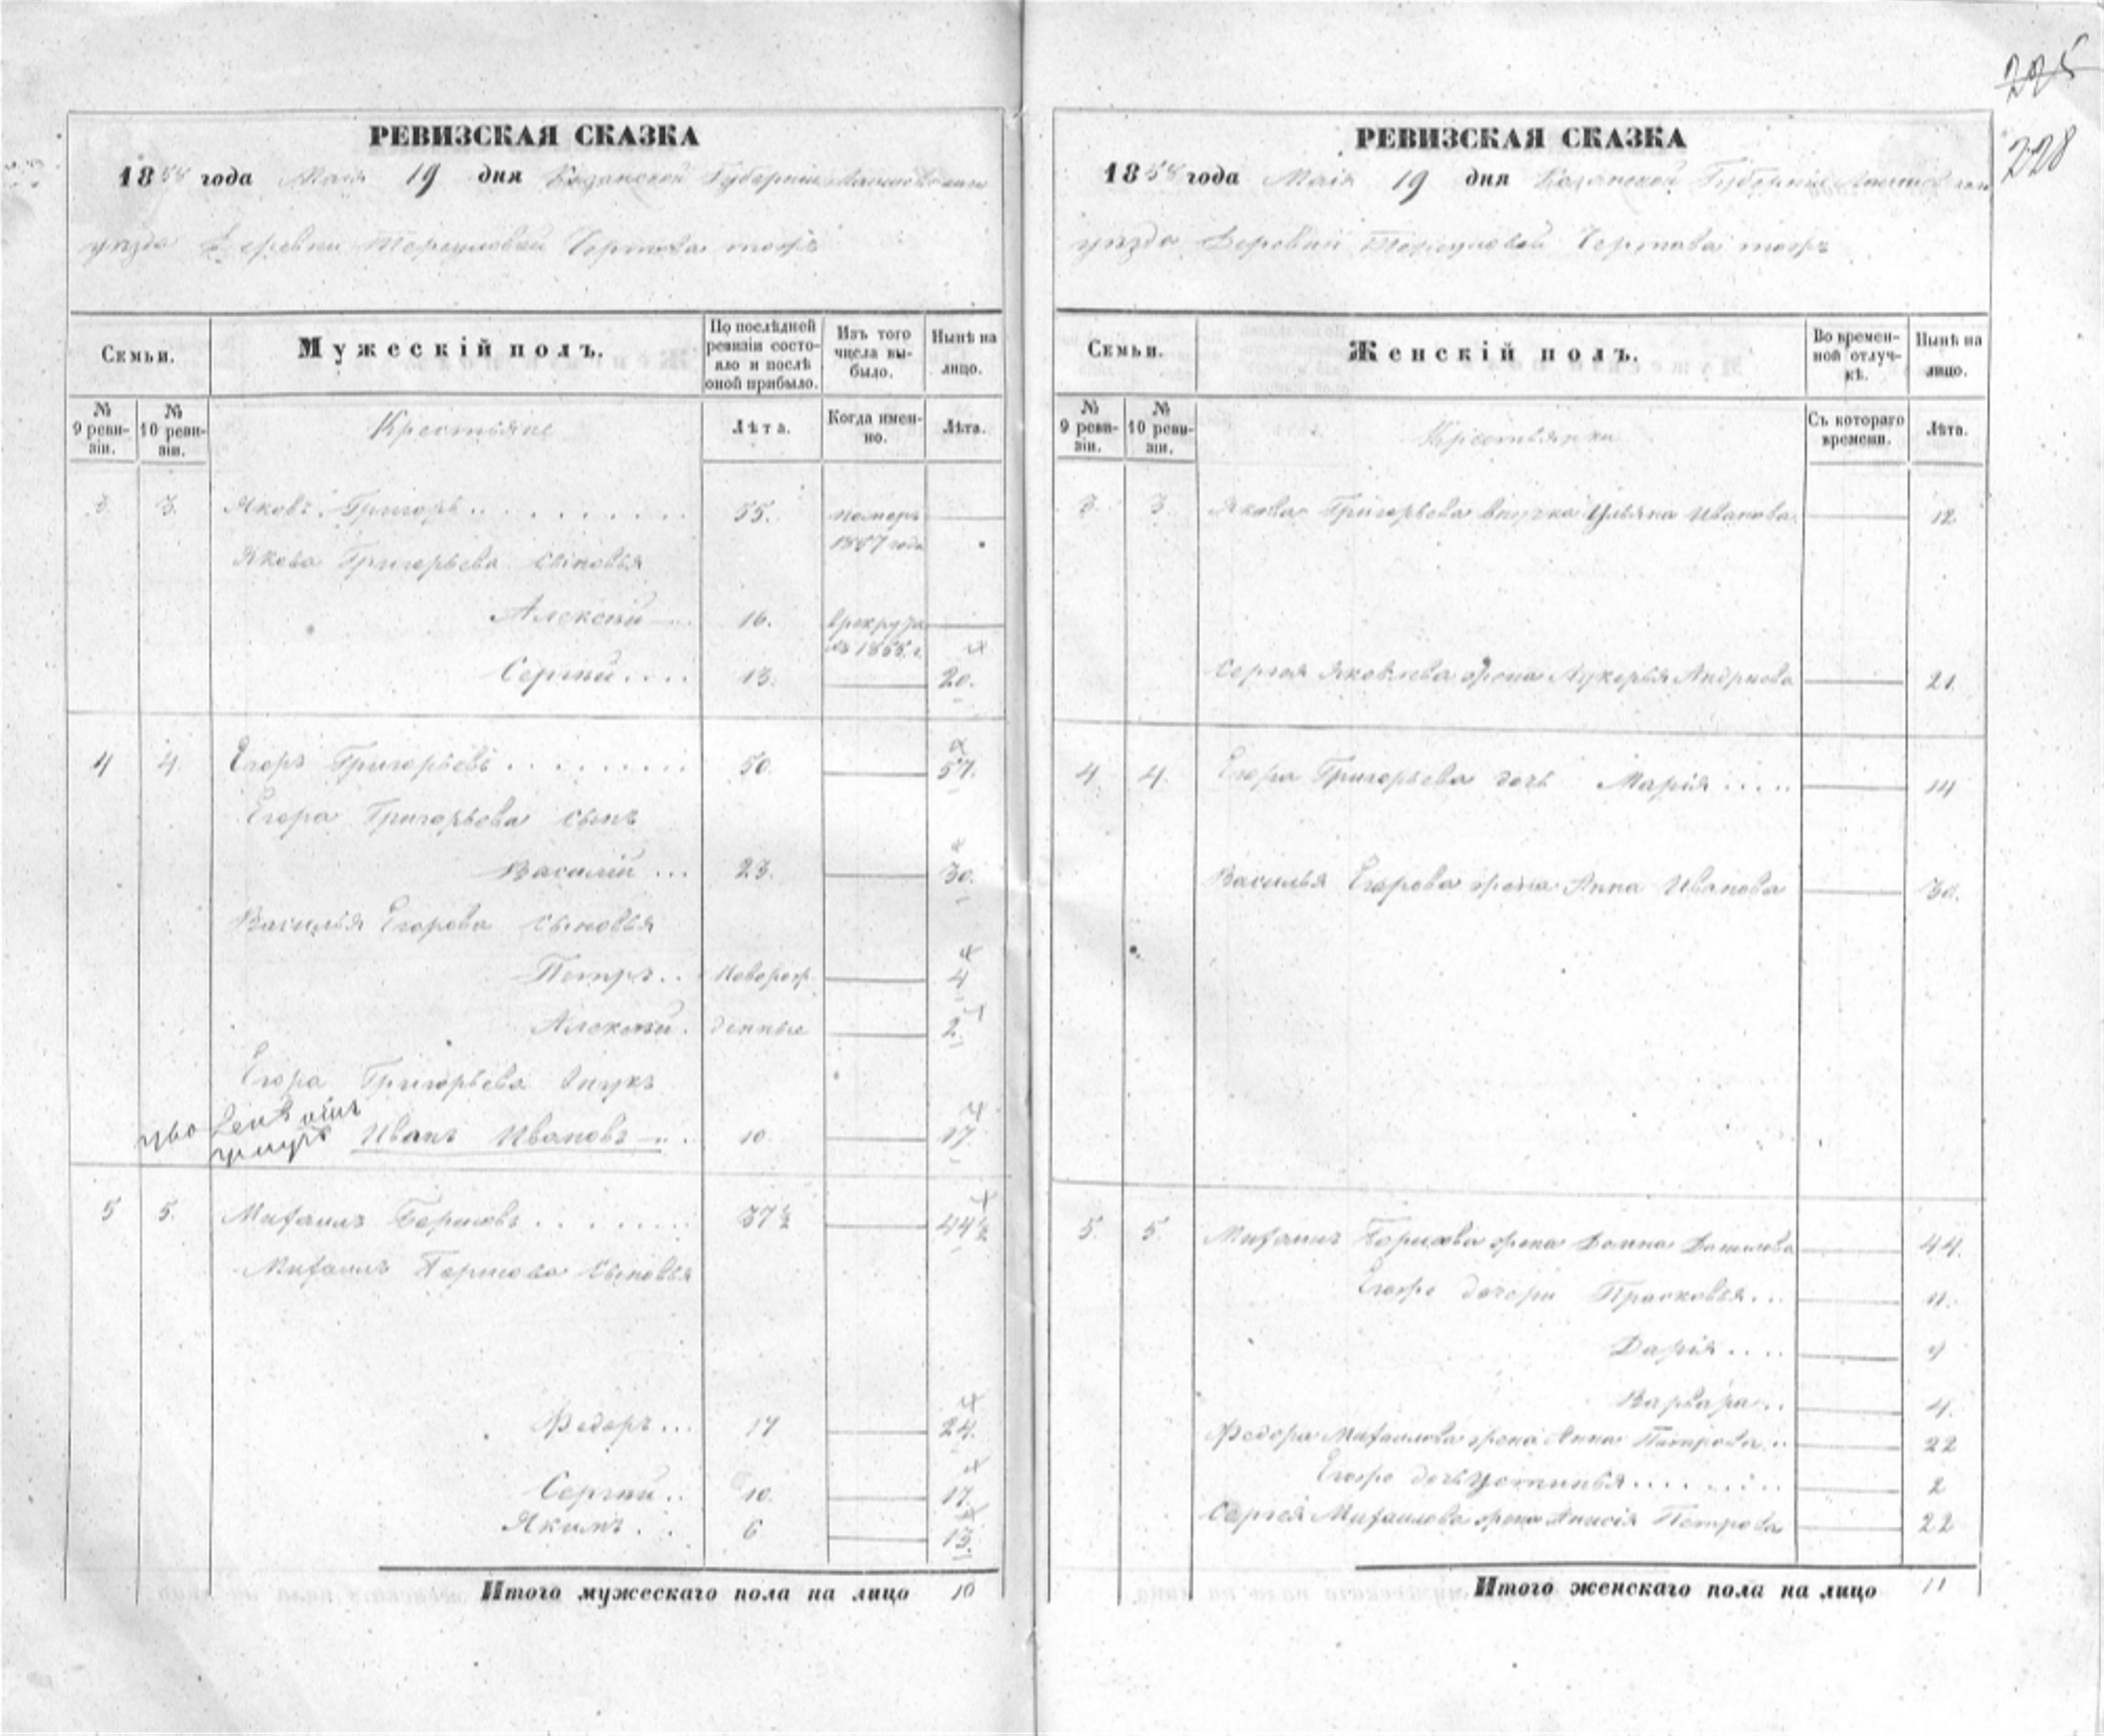 225
228
РЕВИЗСКАЯ СКАЗКА
1858 года Маія 19 дня Казанской Губерніи
уѣзда Деревни Чертова тожъ
Семьи.
Мужескій полъ.
По послѣдней ревизіи состояло и послѣ оной прибыло.
Изъ того числа выбыло.
Нынѣ на лицо.
№ 9 ревизіи.
№ 10 ревизіи.
Крестьяне
Лѣта.
Когда именно.
Лѣта.
3. 3. Яковъ Григорь.. 55. померъ
1857 года
Якова Григорьева сыновья
Алексѣй 16. в рекрута
въ 1855 г.
Сергѣй.... 13. 20.
4 4. Егоръ Григорьевъ 50. 57.
Егора Григорьева сынъ
Василій ... 23. 30.
Василья Егорова сыновья
Петръ.. новорож 4
Алексѣй. денные 2.
Егора Григорьева внукъ
Иванъ Ивановъ 10 17.
5 5. Михаилъ Борисовъ 37½ 44½
Михаилъ Борисова сыновья
Федоръ... 17 24.
Сергѣй.. 10. 17.
Якимъ.. 6 13.
Итого мужескаго пола на лицо 10
РЕВИЗСКАЯ СКАЗКА
1858 года Маія 19 дня Казанской Губерніи
уѣзда Деревни Чертова тожъ
Семьи.
Женскій полъ.
Во временной отлучкѣ.
Нынѣ на лицо.
№ 9 ревизіи.
№ 10 ревизіи.
Крестьянки
Съ котораго времени.
Лѣта.
3. 3. Якова Григорьева внучка Ульяна Иванова 12
Сергея Яковлева жена Лукерья Андреева 21.
4. 4. Егора Григорьева дочь Марія.... 14
Василья Егорова жена Анна Иванова 30.
5. 5. Михаилъ Борисова жена Домна Данилова 44.
Егоже дочери Прасковья... 11.
Дарія.... 9
Варвара.. 4.
Федора Михаилова жена Анна Петрова.. 22
Егоже дочь Устинья 2
Сергея Михаилова жена Анисія Петрова 22
Итого женскаго пола на лицо 11